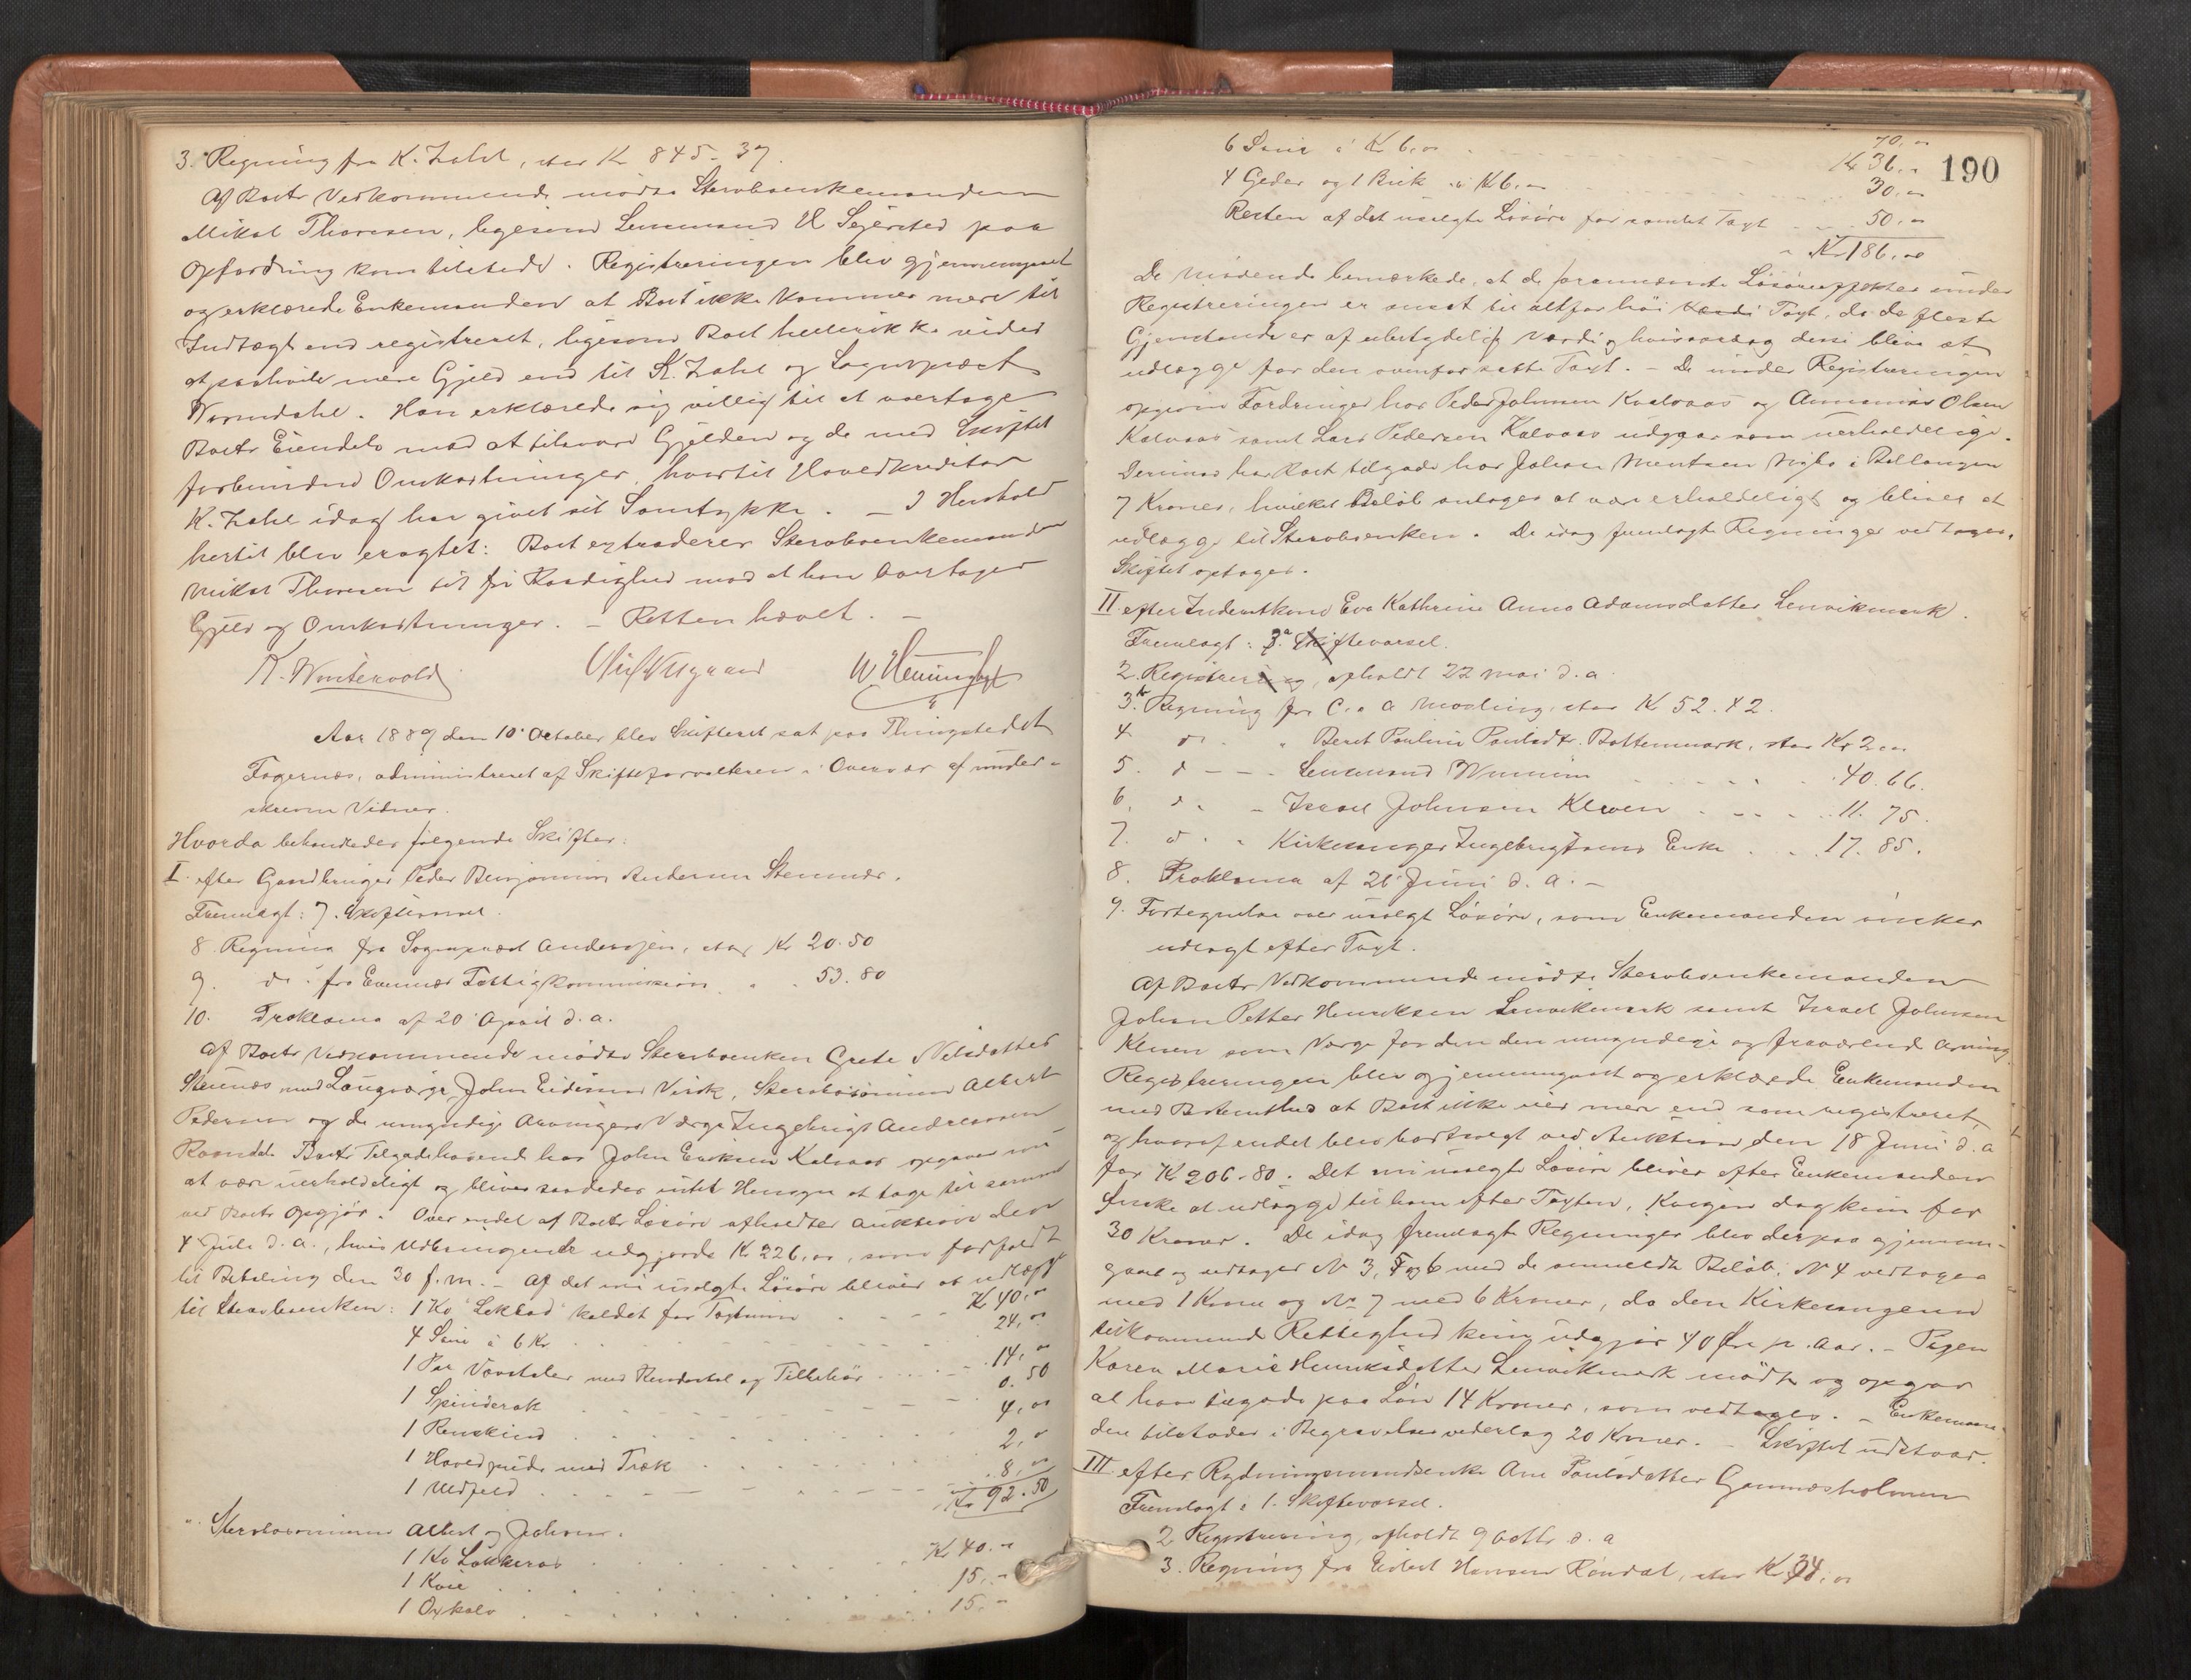 3. Regning fra K. Zahl, stor Kr 845-37.
Af Boets Vedkommende mødte Stervboenkemanden
Mikal Thoresen, ligesom Lensmand Sejersted paa
Opfordring kom tilstede. Registreringen blev gjennemgaaet
og erklærede Enkemanden at Boet ikke kommer mere til
Indtægt end registreret, ligesom Boet heller ikke vides
at paahvile mere Gjeld end til K. Zahl og Sogneprest
Normdahl. Han erklærede sig villig til at overtage
Boets Eiendele mod at tilsvare Gjelden og de med Skiftet
forbundne Omkostninger, hvortil Hovedkreditor
K. Zahl idag har givet sit Samtykke. – I Henhold
hertil blev eragtet: Boet extraderes Stervboenkemand
Mikal Thoresen til fri Raadighed mod at han overtager
Gjeld og Omkostninger. – Retten hævet. –
K. Wintervold
Aar 1889 den 10 October blev Skifteret sat paa Thingstedet
Fagernæs, administreret af Skifteforvalteren i Overvær af under-
skrevne Vidner.
Hvorda behandledes følgende Skifter:
I. efter Gaardbruger Peder Benjamin Andersen Stennæs.
Fremlagt: 7. Skiftevarsel.
8. Regning fra Sogneprest Anderssen, stor Kr 20.50
9. do. fra Evenæs Fattigkommission " " 53.80
10. Proklama af 20 April d. a.
Af Boets Vedkommende mødte Stervboenken Grete Nilsdatter
Stennæs med Laugværge John Virik, Stervbosønnen Albert
Pedersen og de umyndige Arvingers Værge Ingebrigt Andreassen
Boets Tilgodehavende hos John Eriksen Kalvaas opgaves nu
at være uerholdeligt og bliver saaledes intet Hensyn at tage til samme
ved Boets Opgjør. Over endel af Boets Løsøre afholdtes Auktion den
4 Juli d. a., hvis Udbringende udgjorde Kr 226,00, som forfaldt
til Betaling den 30 f. m. – Af det nu usolgte Løsøre bliver at udlægge
til Stervboenken: 1 Ko kaldet for Taxtsum Kr 40,00
4 Sauer à 6 Kr 24,00
1 Par Vævstoler med Rendestol og Tilbehør 14,00
1 Spinderok 0.50
1 Renskind 4,00
1 Hovedpude med Træk 2,00
1 Udfeld 8,00
Kr 92.50
" Stervbosønnerne Albert og Johan:
1 Ko Løkkeros Kr 40.00
1 Kvie 15,00
1 Oxkalv 15,00
190
70,00
6 Sauer à Kr 6,00 Kr 36,00
4 Geder og 1 Buk à Kr 6,00 30,00
Resten af det usolgte Løsøre for samlet Taxt 50,00
Kr 186,00
De mødende bemærkede, at de forannævnte Løsøreeffekter under
Registreringen er ansat til altfor høi Taxt, da de fleste
Gjenstande er af ubetydelig Værdi, hvisaarsag disse blive at
udlægge for den ovenfor satte Taxt. – De under Registreringen
opgivne Fordringer hos Peder Johnsen Kalvaas og Olsen
Kalvaas samt Lars Pedersen Kalvaas udgaar som uerholdelige.
Derimod har Boet tilgode hos Johan Mentsen i Ballangen
7 Kroner, hvilket Beløb antages at være erholdeligt og bliver at
udlægge til Stervboenken. De idag fremlagte Regninger vedtages.
Skiftet optages.
II efter Inderstkone Eva Kathrine Anna Adamsdatter Lenvikmark.
Fremlagt: Skiftevarsel.
2. Registrering, afholdt 22 Mai d. a.
3. Regning fra C. A. Mosling, stor Kr 52.42.
4 do. " Beret Pauline Paulsdtr. Bottenmark, stor Kr 2,00
5. d – – Lensmand 40.66.
6. d. – Israel Johnsen Kleven 11.75.
7. d. " Kirkesanger Ingebrigtsens Enke 17.85.
8. Proklama af 21 Juni d. a. –
9. Fortegnelse over usolgt Løsøre, som Enkemanden ønsker
udlagt efter Taxt.
Af Boets Vedkommende mødte Stervboenkemanden
Johan Petter Henriksen Lenvikmark samt Israel Johnsen
Kleven som Værge for den den umyndige og fraværende Arving.
Registreringen blev gjennemgaaet og erklærede Enkemanden
med Bestemthed at Boet ikke eier mere end som registreret,
og hvoraf endel blev bortsolgt ved Auktion den 18 Juni d. a.
for Kr 206-80. Det nu usolgte Løsøre bliver efter Enkemandens
Ønske at udlægge til ham efter Taxten, Kvigen dog kun for
30 Kroner. De idag fremlagte Regninger blev derpaa gjennem-
gaaet og vedtages No 3, 5 og 6 med de anmeldte Beløb, No 4 vedtages
med 1 Krone og No 7 med 6 Kroner, da den Kirkesangeren
tilkommende Rettighed kun udgjør 40 Øre p. Aar. – Pigen
Karen Marie Henriksdatter Lenvikmark mødte og opgav
at have tilgode paa Løn 14 Kroner, som vedtages. – Enkeman-
den tilstodes i Begravelsesvederlag 20 Kroner. – Skiftet udstaar.
III efter Rydningsmandsenke Ane Paulsdatter Gammesholmen
Fremlagt: 1. Skiftevarsel.
2 Registrering, afholdt 9 Octbr. d. a
3. Regning fra Hansen Røndal, stor Kr 34,00